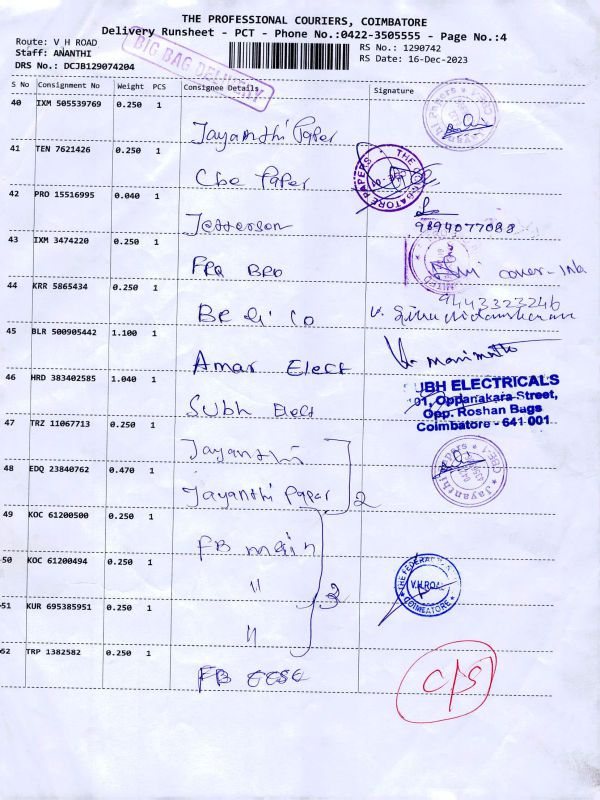 THE PROFESSIONAL COURIERS, COIMBATORE
Delivery Runsheet - PCT - Phone No.:0422-3505555 - Page No.:4
Route: V H ROAD
RS No.: 1290742
Staff: ANANTHI
RS Date: 16-Dec-2023
DRS No.: DCJB129074204
BIG BAG DELIVERY
S No Consignment No Weight PCS Consignee Details Signature
40 IXM 505539769 0.250 1
Jayanthi Paper
41 TEN 7621426 0.250 1
Cbe Paper
42 PRO 15516995 0.040 1
Jefferson
9894077088
43 IXM 3474220 0.250 1
44 KRR 5865434 0.250 1
9443323246
45 BLR 500905442 1.100 1
Amar Elect
46 HRD 383402585 1.040 1
Subh Elect
SUBH ELECTRICALS
101, Oppanakara Street,
Opp. Roshan Bags
Coimbatore - 641 001
47 TRZ 11067713 0.250 1
Jayanthi
48 EDQ 23840762 0.470 1
Jayanthi Paper 2
49 KOC 61200500 0.250 1
FB main
50 KOC 61200494 0.250 1
"
3
V.H.ROAD
COIMBATORE
51 KUR 695385951 0.250 1
"
52 TRP 1382582 0.250 1
C/S